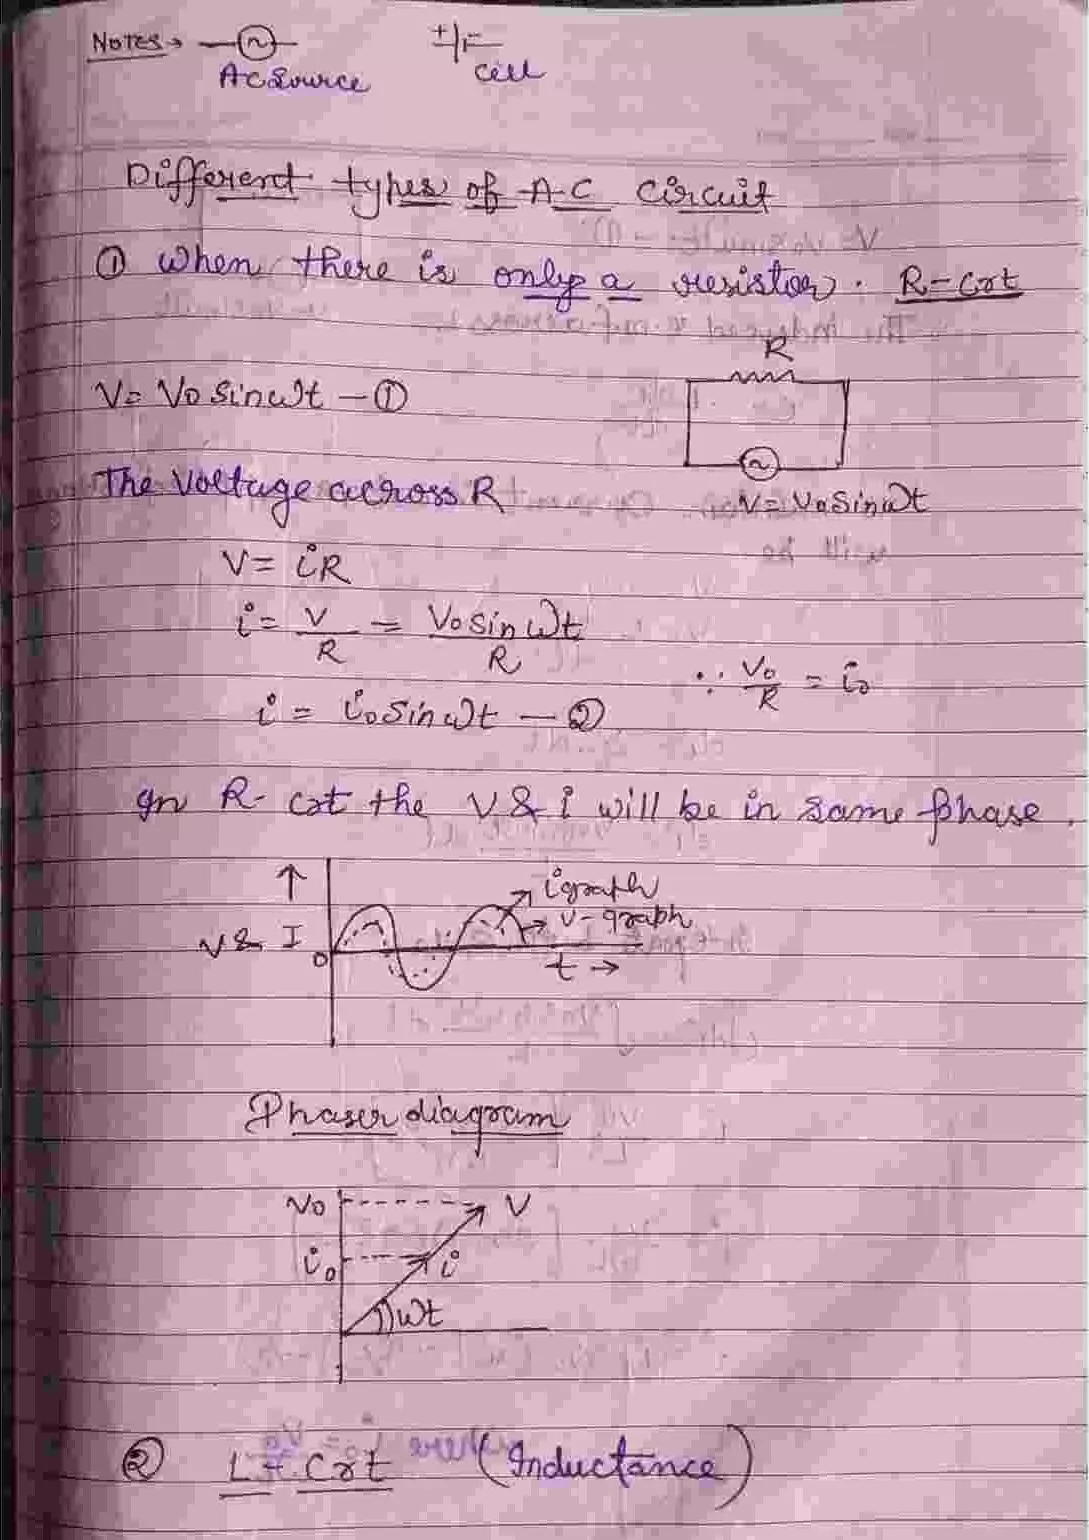 NOTES →
AC Source
+ -
cell
Different types of A-C circuit
① When there is only a resistor. R-crt
R
V = V₀ sinωt — ①
V = V₀ sinωt
The Voltage across R
V = iR
i = V/R = V₀ sin ωt/R
∵ V₀/R = i₀
i = i₀ sin ωt — ②
In R- crt the V & i will be in same phase.
↑
i graph
V- graph
V & I
0
t →
Phaser diagram
V₀
V
i₀
i
ωt
② L - Crt (Inductance)